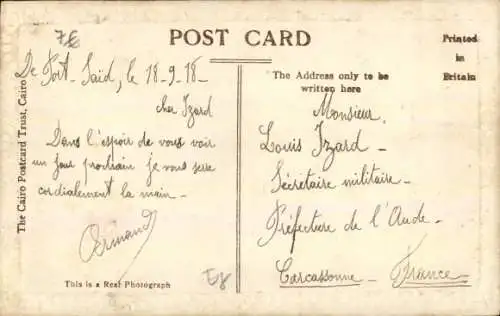 7€
POST CARD
Printed
in
Britain
The Cairo Postcard Trust, Cairo
De Port-Saïd, le 18-9-18-
cher Izard
Dans l'espoir de vous voir
un jour prochain je vous serre
cordialement la main-
Armand
This is a Real Photograph
Eg
The Address only to be
written here
Monsieur,
Louis Izard-
Sécrétaire militaire-
Préfecture de l'Aude-
Carcassonne- France-